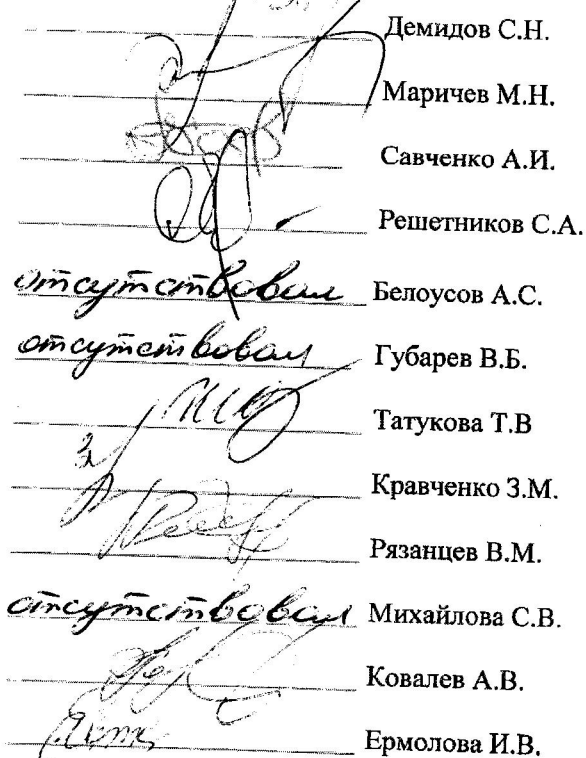 Демидов С.Н.
Маричев М.Н.
Савченко А.И.
Решетников С.А.
отсутствовал Белоусов А.С.
отсутствовал Губарев В.Б.
Татукова Т.В
Кравченко З.М.
Рязанцев В.М.
отсутствовал Михайлова С.В.
Ковалев А.В.
Ермолова И.В.